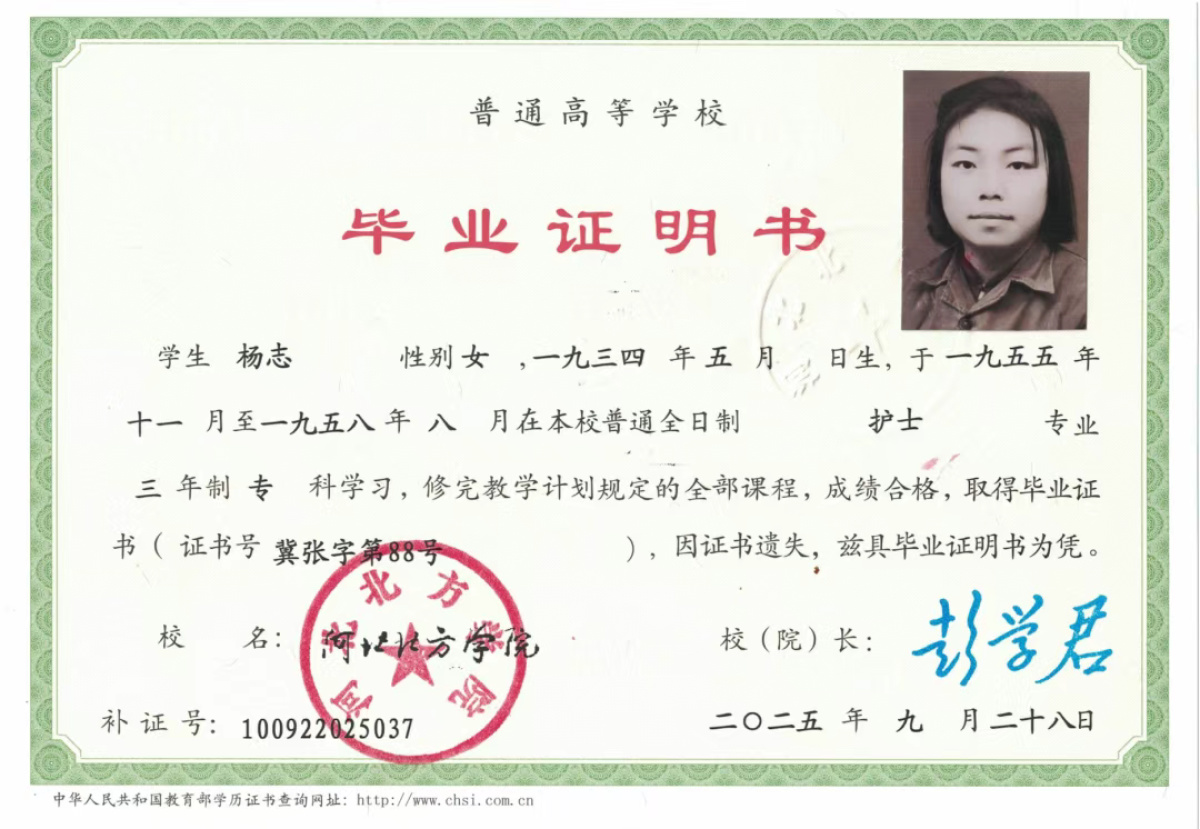 普通高等学校
毕业证明书
学生 杨志 性别 女 ,一九三四 年 五 月 日生, 于 一九五五 年
十一 月至一九五八 年 八 月在本校普通全日制 护士 专业
三 年制 专 科学习, 修完教学计划规定的全部课程, 成绩合格, 取得毕业证
书 ( 证书号 冀张字第88号 ), 因证书遗失, 兹具毕业证明书为凭。
校 名: 河北北方学院
河北北方学院
校 (院) 长: 彭学君
补 证 号: 100922025037
二〇二五 年 九 月 二十八日
中华人民共和国教育部学历证书查询网址: http://www.chsi.com.cn